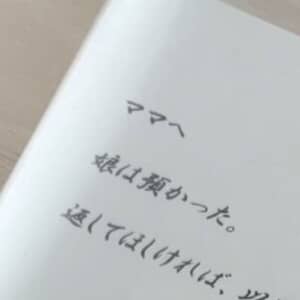 ママへ
娘は預かった。
返してほしければ、以